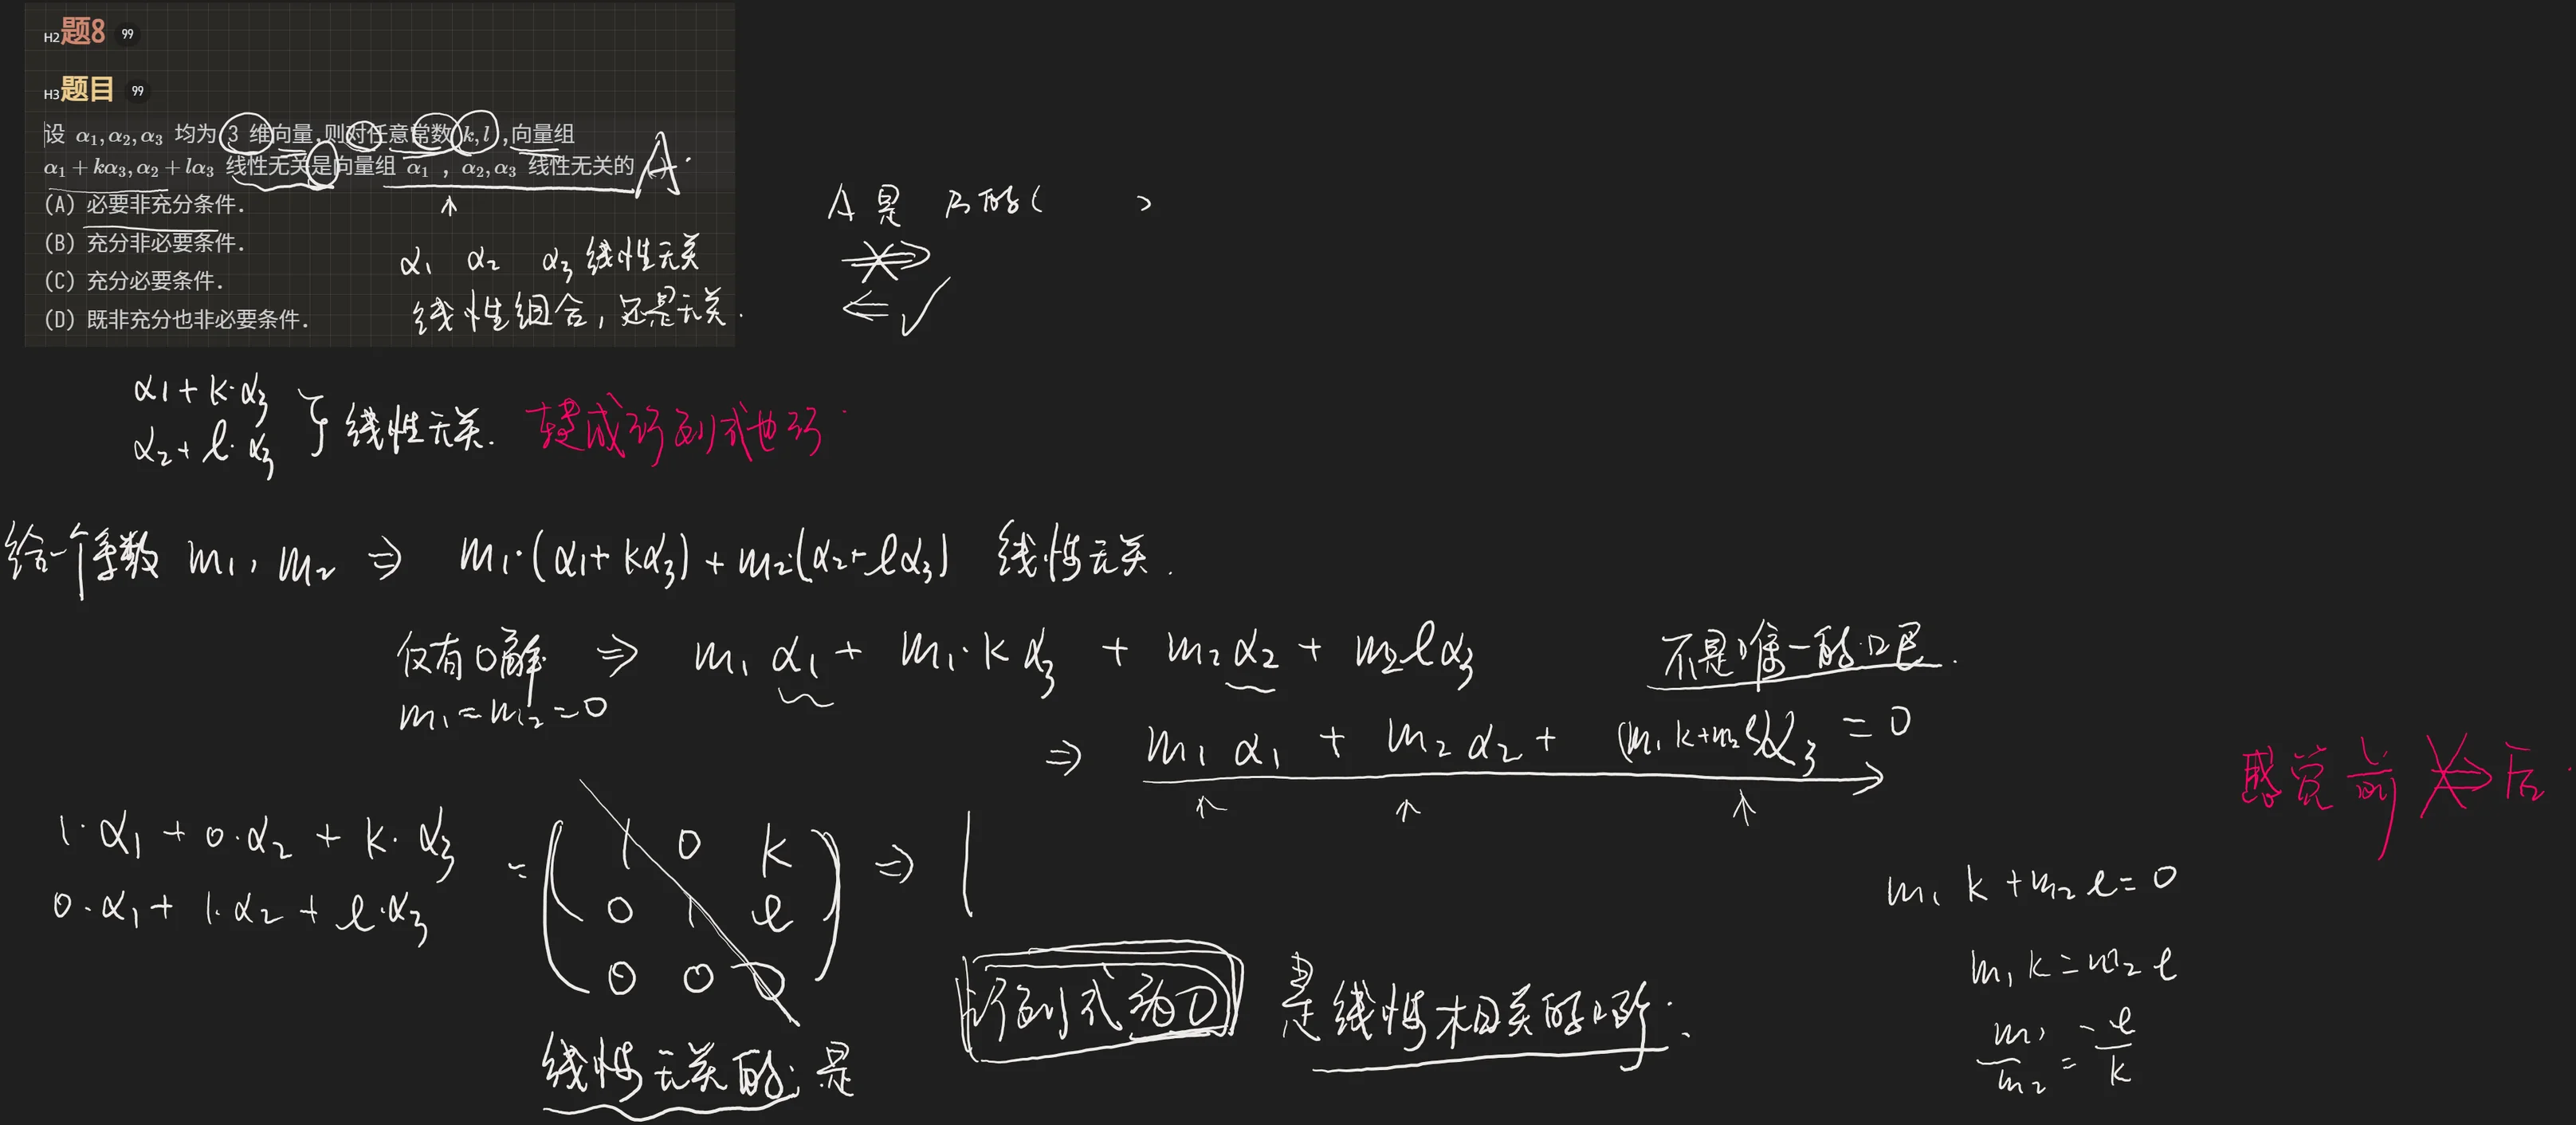 H2题8 99
H3题目 99
设 α₁,α₂,α₃ 均为 3 维向量,则对任意常数 k,l ,向量组
α₁+kα₃,α₂+lα₃ 线性无关是向量组 α₁ , α₂,α₃ 线性无关的 ( ) A.
(A) 必要非充分条件.
(B) 充分非必要条件.
(C) 充分必要条件.
(D) 既非充分也非必要条件.
α₁ α₂ α₃ 线性无关
线性组合，还是无关.
A 是 B的( )
α1+k·α₃
α₂+l·α₃
线性无关.
转成行列式也行.
给一个系数 m₁, m₂ ⇒ m₁·(α₁+kα₃)+m₂·(α₂+lα₃) 线性无关.
仅有0解 ⇒ m₁α₁+m₁·kα₃+m₂α₂+m₂lα₃
m₁=m₂=0
不是唯一的吧.
⇒ m₁α₁+m₂α₂+(m₁k+m₂l)α₃=0
感觉前 ⇒ 后.
1·α₁+0·α₂+k·α₃
0·α₁+1·α₂+l·α₃
= ( 1 0 k
0 1 l
0 0 0 ) ⇒ |
m₁k+m₂l=0
m₁k=m₂l
m₁/m₂=-l/k
行列式为0 是线性相关的
线性无关的; 是